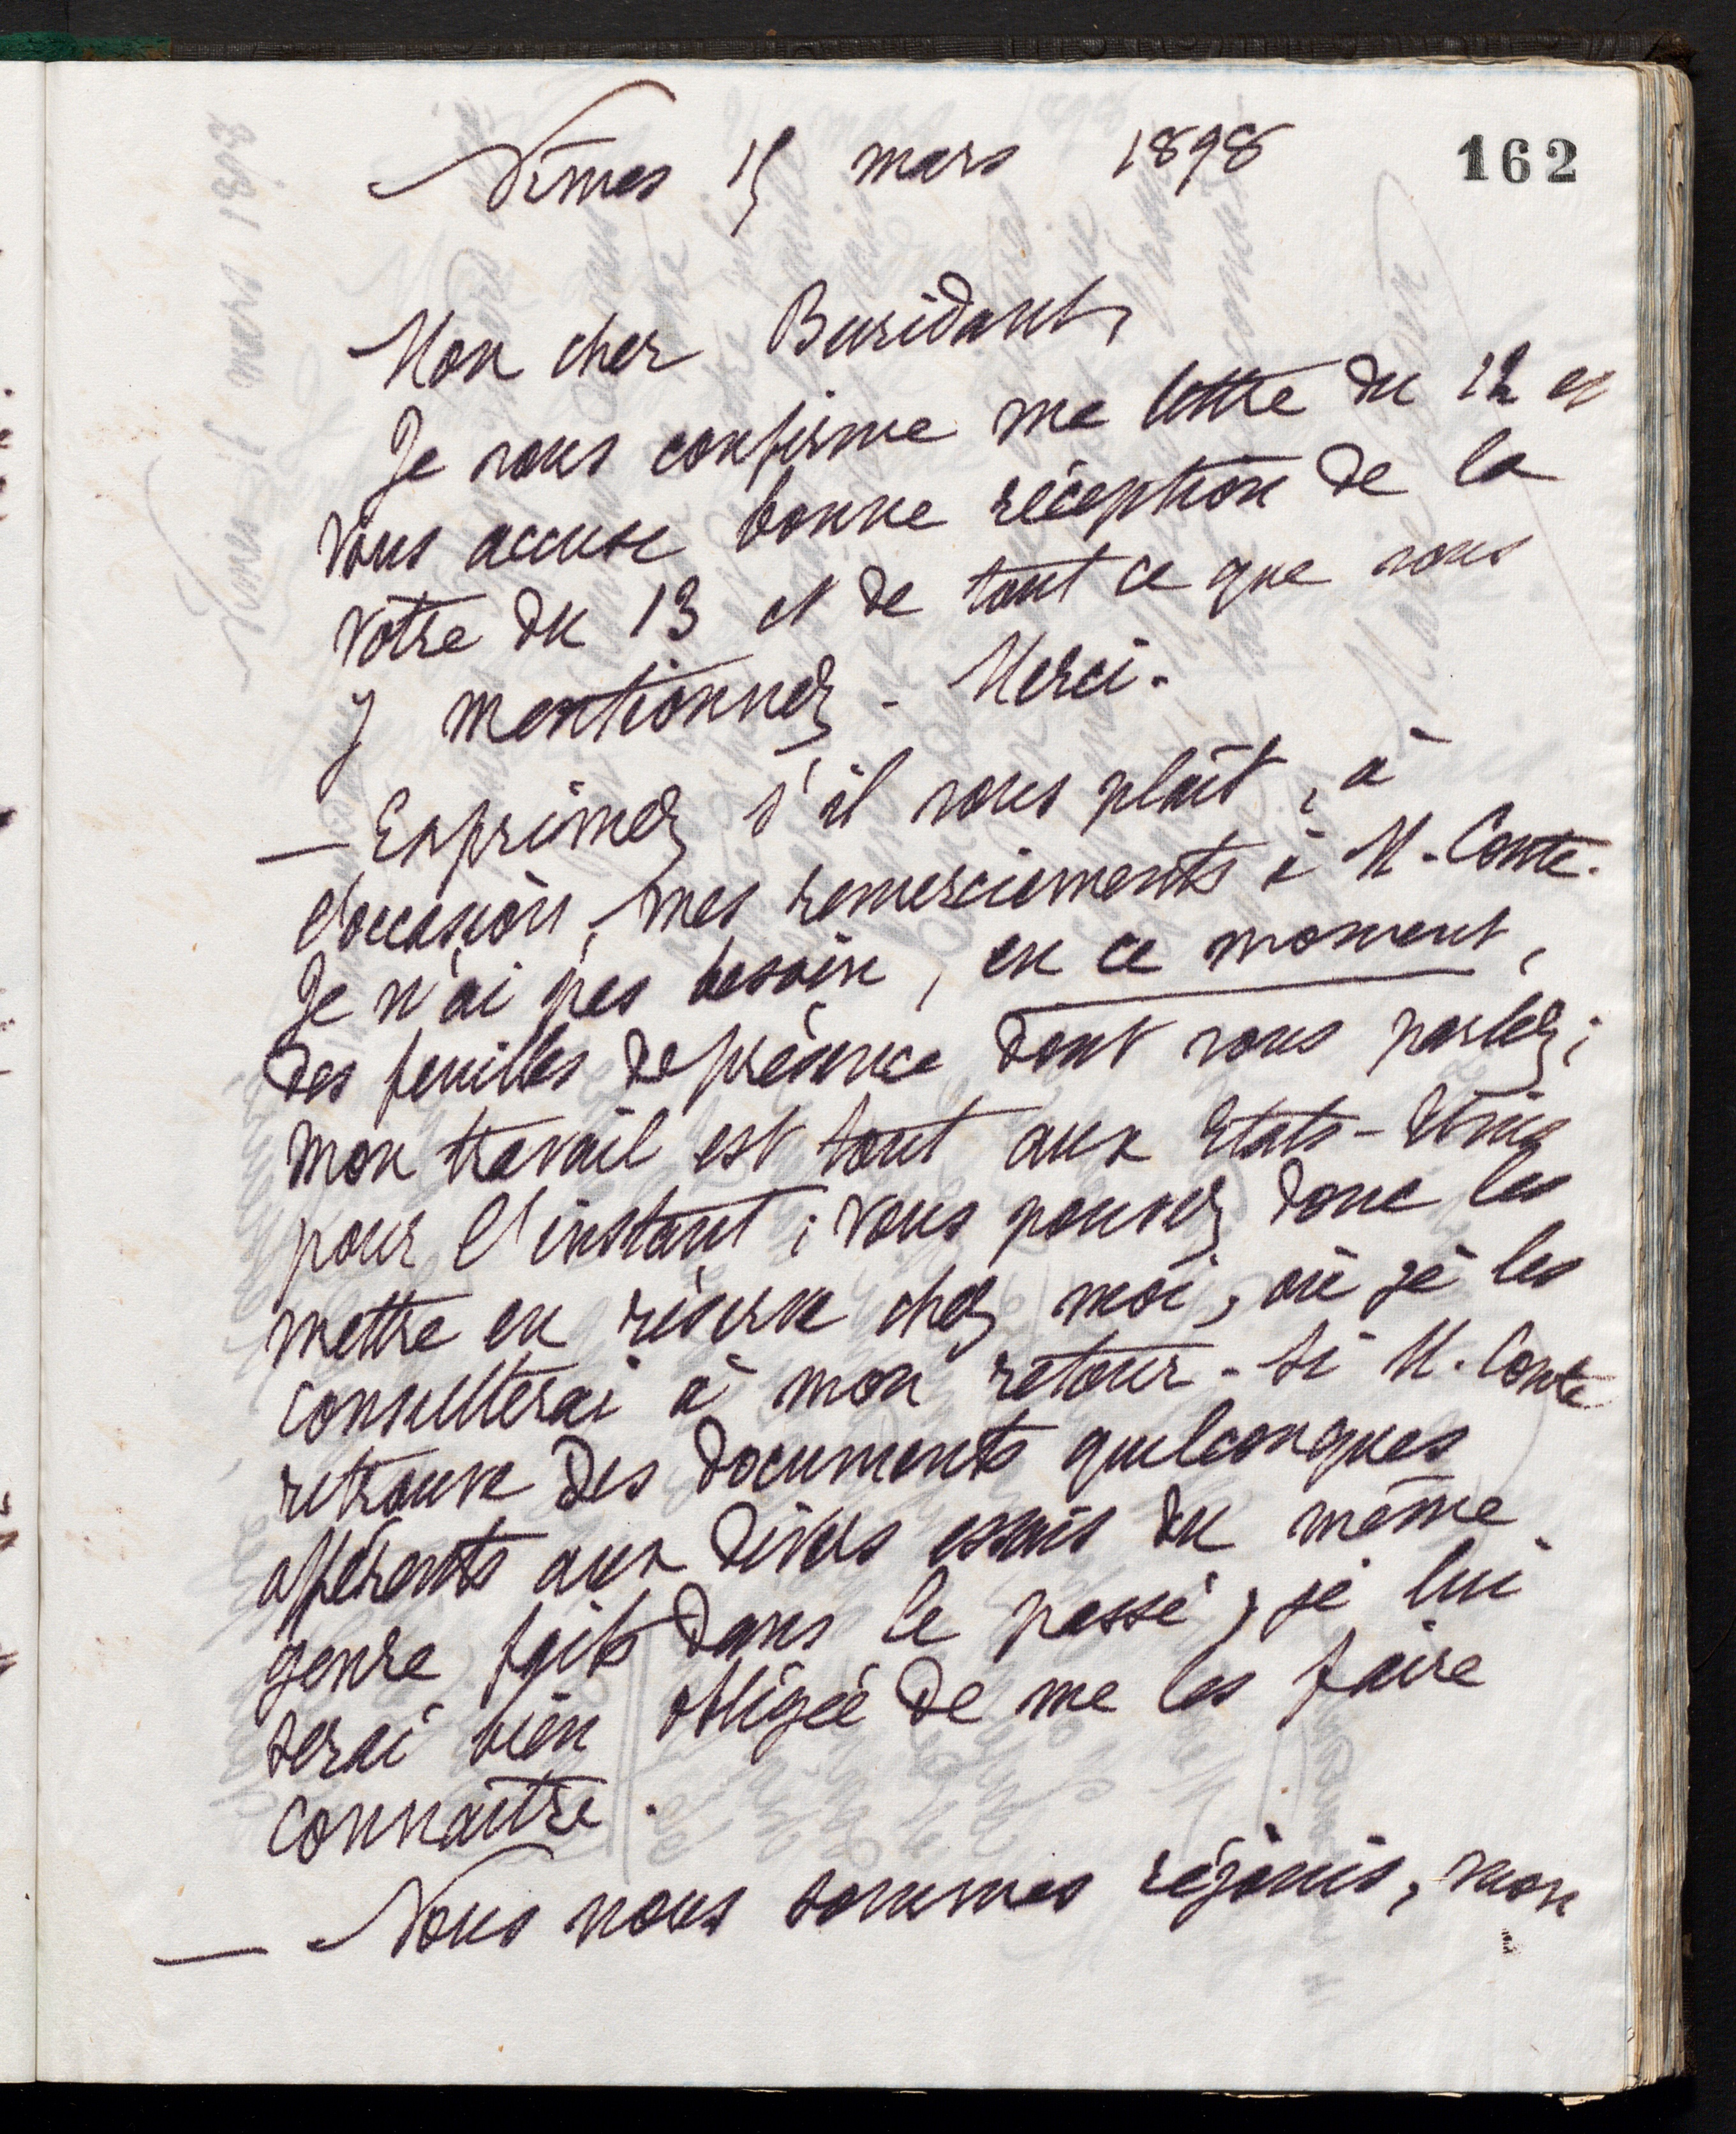 162
Nîmes 15 mars 1898
Mon cher Buridant,
Je vous confirme ma lettre du 12 et
vous accuse bonne réception de la
vôtre du 13 et de tout ce que vous
y mentionnez - Merci.
— Exprimez s'il vous plaît, à
l'occasion, mes remerciements à M. Conte.
Je n'ai pas besoin, en ce moment,
des feuilles de présence dont vous parlez;
mon travail est tout aux Etats-Unis
pour l'instant; vous pouvez donc les
mettre en réserve chez moi, où je les
consulterai à mon retour - Si M. Conte
retrouve des documents quelconques
afférents aux divers essais du même
genre faits dans le passé, je lui
serai bien obligée de me les faire
connaître.
— Nous nous sommes réjouis, mon